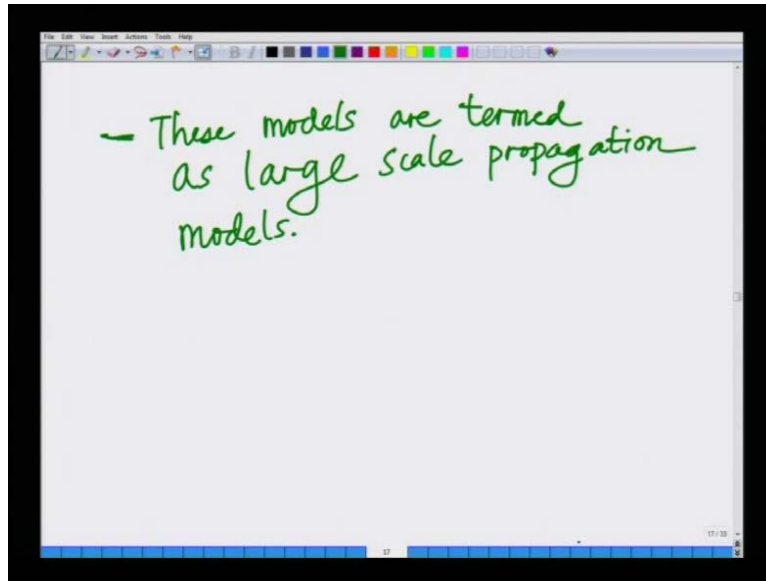 File Edit View Insert Actions Tools Help
B I
– These models are termed
as large scale propagation
models.
17/33
17